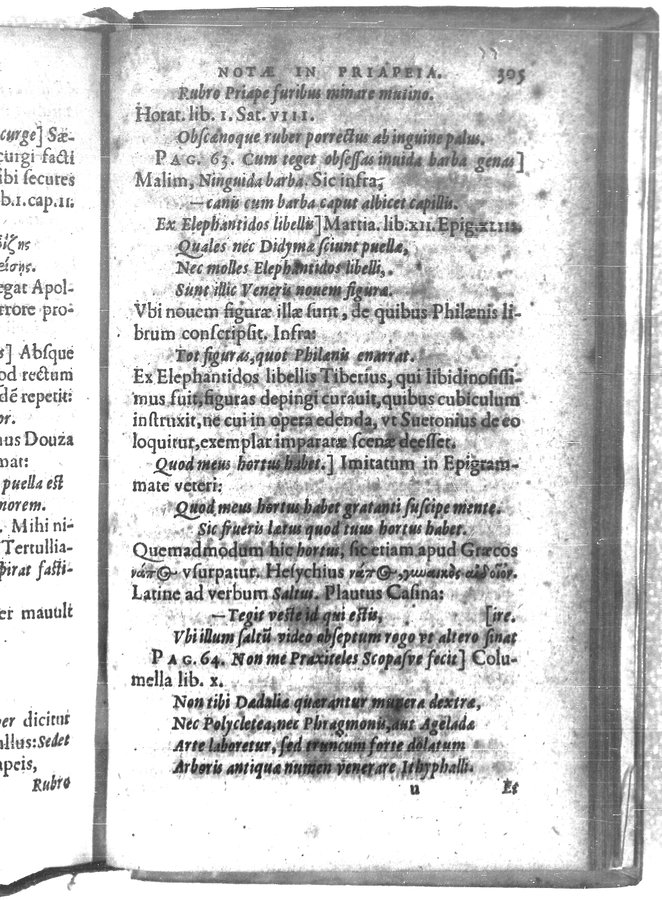 curge] Sæ-
curgi facti
ibi secures
b.1.cap.11.
egat Apol-
rrore pro-
s] Absque
od rectum
dẽ repetit:
or.
nus Douza
mat:
puella est
morem.
. Mihi ni-
Tertullia-
pirat fasti-
er mauult
per dicitur
allus:Sedet
apeis,
Rubro
NOTÆ IN PRIAPEIA. 305
Rubro Priape furibus minare mutino.
Horat. lib. 1. Sat. VIII.
Obscænoque ruber porrectus ab inguine palus.
PAG. 63. Cum teget obsessas inuida barba genas]
Malim, Ninguida barba. Sic infra,
—canis cum barba caput albicet capillis.
Ex Elephantidos libellis] Martia. lib.XII. Epig.XLIII.
Quales nec Didymæ sciunt puellæ,
Nec molles Elephantidos libelli,
Sunt illic Veneris nouem figuræ.
Vbi nouem figuræ illæ sunt, de quibus Philænis li-
brum conscripsit. Infra:
Tot figuras, quot Philænis enarrat.
Ex Elephantidos libellis Tiberius, qui libidinosissi-
mus fuit, figuras depingi curauit, quibus cubiculum
instruxit, ne cui in opera edenda, vt Suetonius de eo
loquitur, exemplar imparatæ scenæ deesset.
Quod meus hortus habet.] Imitatum in Epigram-
mate veteri:
Quod meus hortus habet gratanti suscipe mente.
Sic frueris latus quod tuus hortus habet.
Quemadmodum hic hortus, sic etiam apud Græcos
νάπος vsurpatur. Hesychius νάπος, γυναικὸς αἰδοῖον.
Latine ad verbum Saltus. Plautus Casina:
—Tegit veste id qui estis, [ire.
Vbi illum saltũ video obseptum rogo vt altero sinat
PAG. 64. Non me Praxiteles Scopasve fecit] Colu-
mella lib. x.
Non tibi Dædaliæ quærantur munera dextræ,
Nec Polycletea, nec Phragmonis, aut Agelada
Arte laboretur, sed truncum forte dolatum
Arboris antiquæ numen venerare Ithyphalli.
u Et